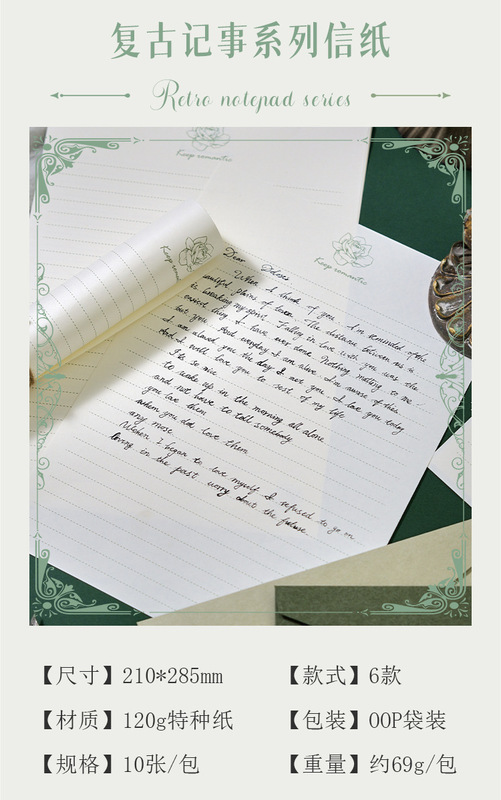 复古记事系列信纸
Retro notepad series
Keep romantic
Keep romantic
Keep
Dear
When I think of you. I am reminded of the
beautiful places of town. The distance between us is
is breaking my spirit. Falling in love with you was the
easiest thing I have ever done. Nothing matters to me
but you. And everyday I am alive I'm aware of this
I loved you the day I met you I love you today
And I will love you to rest of my life
I'ts so nice
to wake up in the morning all alone
and not have to tell somebody
you love them
when you do't love them
any more
When I began to love myself I refused to go on
living in the past worry about the future
【尺寸】210*285mm
【款式】6款
【材质】120g特种纸
【包装】OOP袋装
【规格】10张/包
【重量】约69g/包